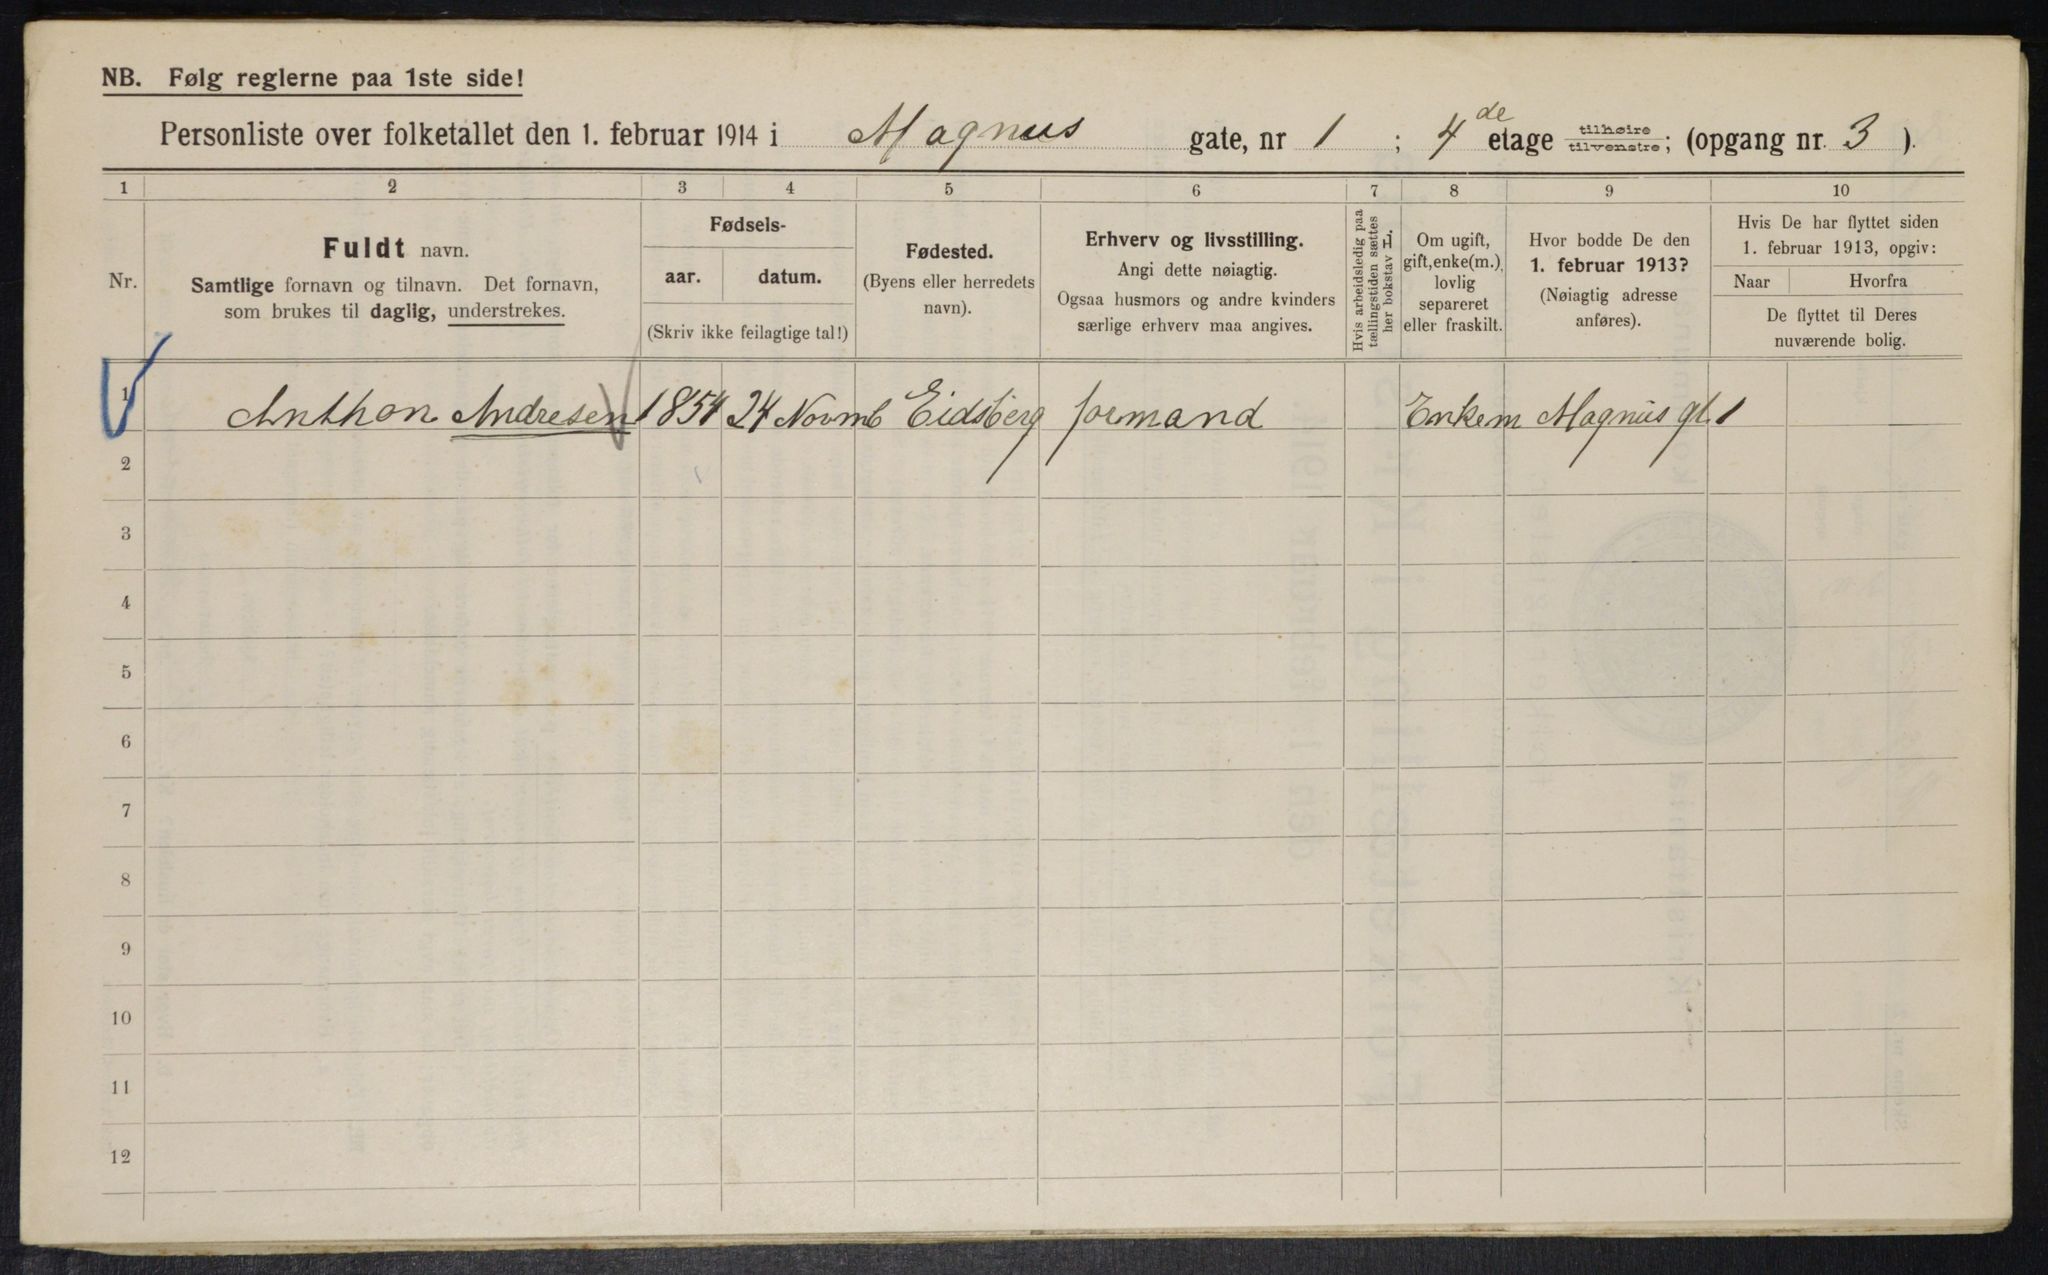 NB. Følg reglerne paa 1ste side!
Personliste over folketallet den 1. februar 1914 i Magnus gate, nr 1 ; 4de etage tilhøire tilvenstre; (opgang nr. 3 ).
1 2 3 4 5 6 7 8 9 10
Nr.
Fuldt navn.
Samtlige fornavn og tilnavn. Det fornavn,
som brukes til daglig, understrekes.
Fødsels-
aar. datum.
(Skriv ikke feilagtige tal!)
Fødested.
(Byens eller herredets
navn).
Erhverv og livsstilling.
Angi dette nøiagtig.
Ogsaa husmors og andre kvinders
særlige erhverv maa angives.
Hvis arbeidsledig paa
tællingstiden sættes
her bokstav L.
Om ugift,
gift, enke(m.),
lovlig
separeret
eller fraskilt.
Hvor bodde De den
1. februar 1913?
(Nøiagtig adresse
anføres).
Hvis De har flyttet siden
1. februar 1913, opgiv:
Naar Hvorfra
De flyttet til Deres
nuværende bolig.
1 Anthon Andresen 1854 24 Novmb Eidsberg formand Enkem Magnus gt. 1
2
3
4
5
6
7
8
9
10
11
12